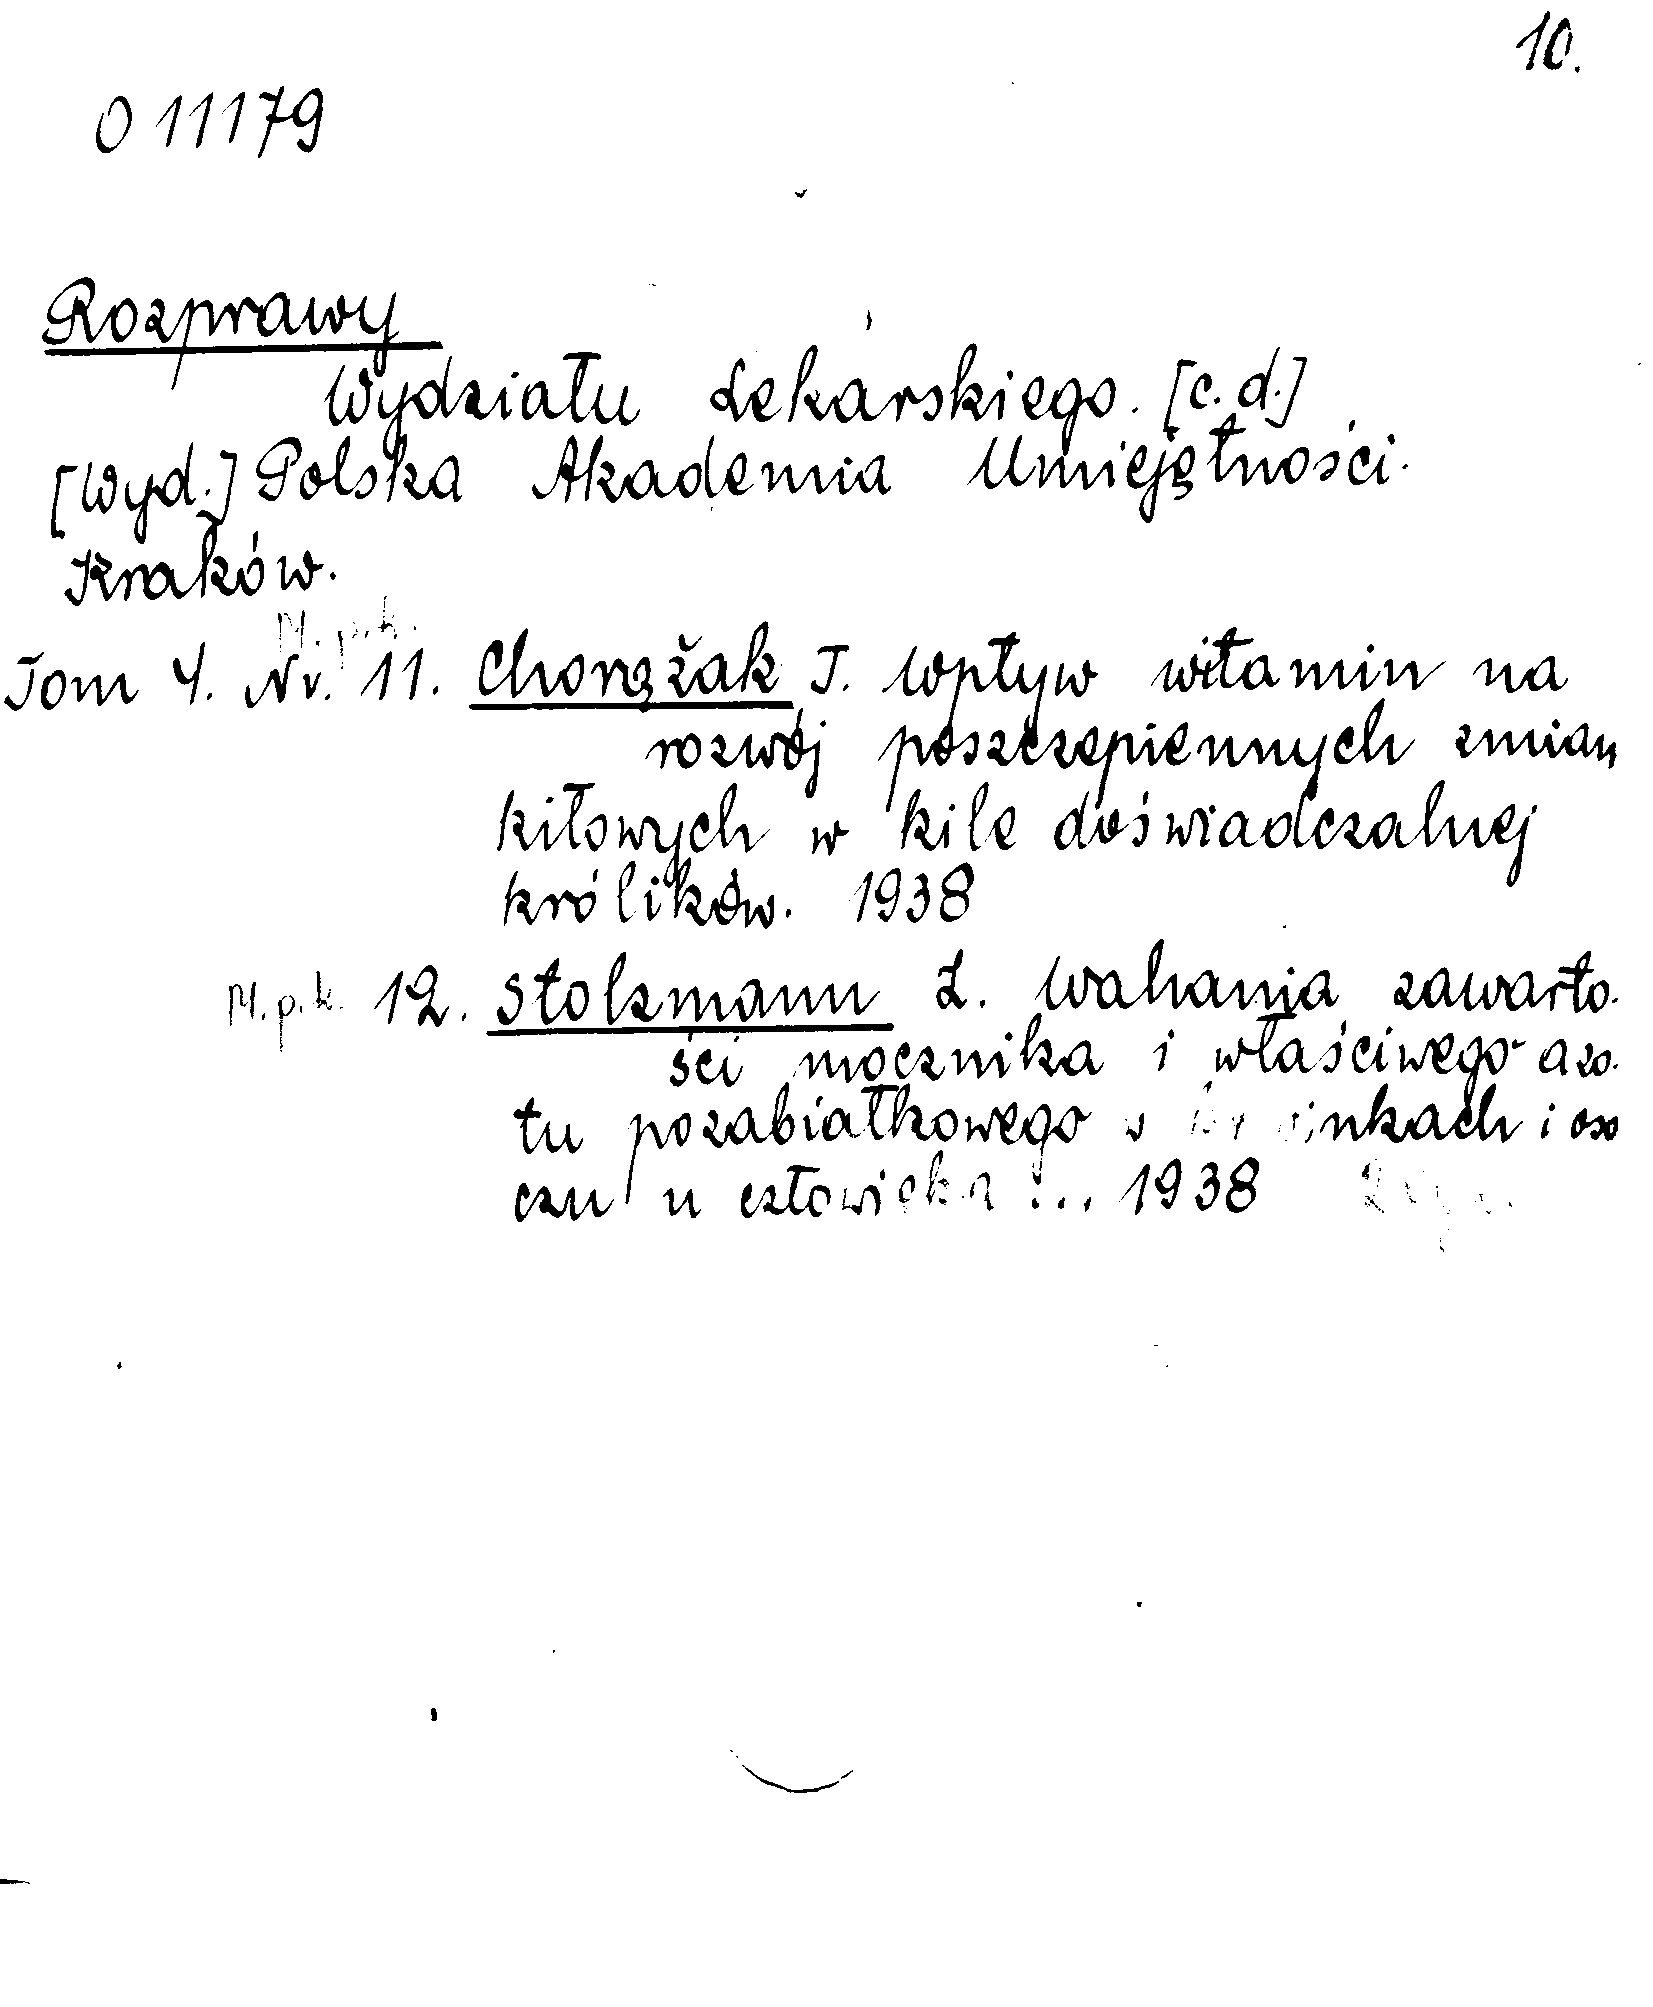 10.
O 11179
Rozprawy
Wydziału Lekarskiego. [c.d.]
[Wyd.] Polska Akademia Umiejętności.
Kraków.
M.p.k.
Tom 4. Nr. 11. Chorążak T. Wpływ witamin na
rozwój poszczepiennych zmian
kiłowych w kile doświadczalnej
królików. 1938
M.p.k. 12. Stolzmann Z. Wahania zawarto-
ści mocznika i właściwego azo-
tu pozabiałkowego w krwinkach i oso
czu u człowieka ... 1938